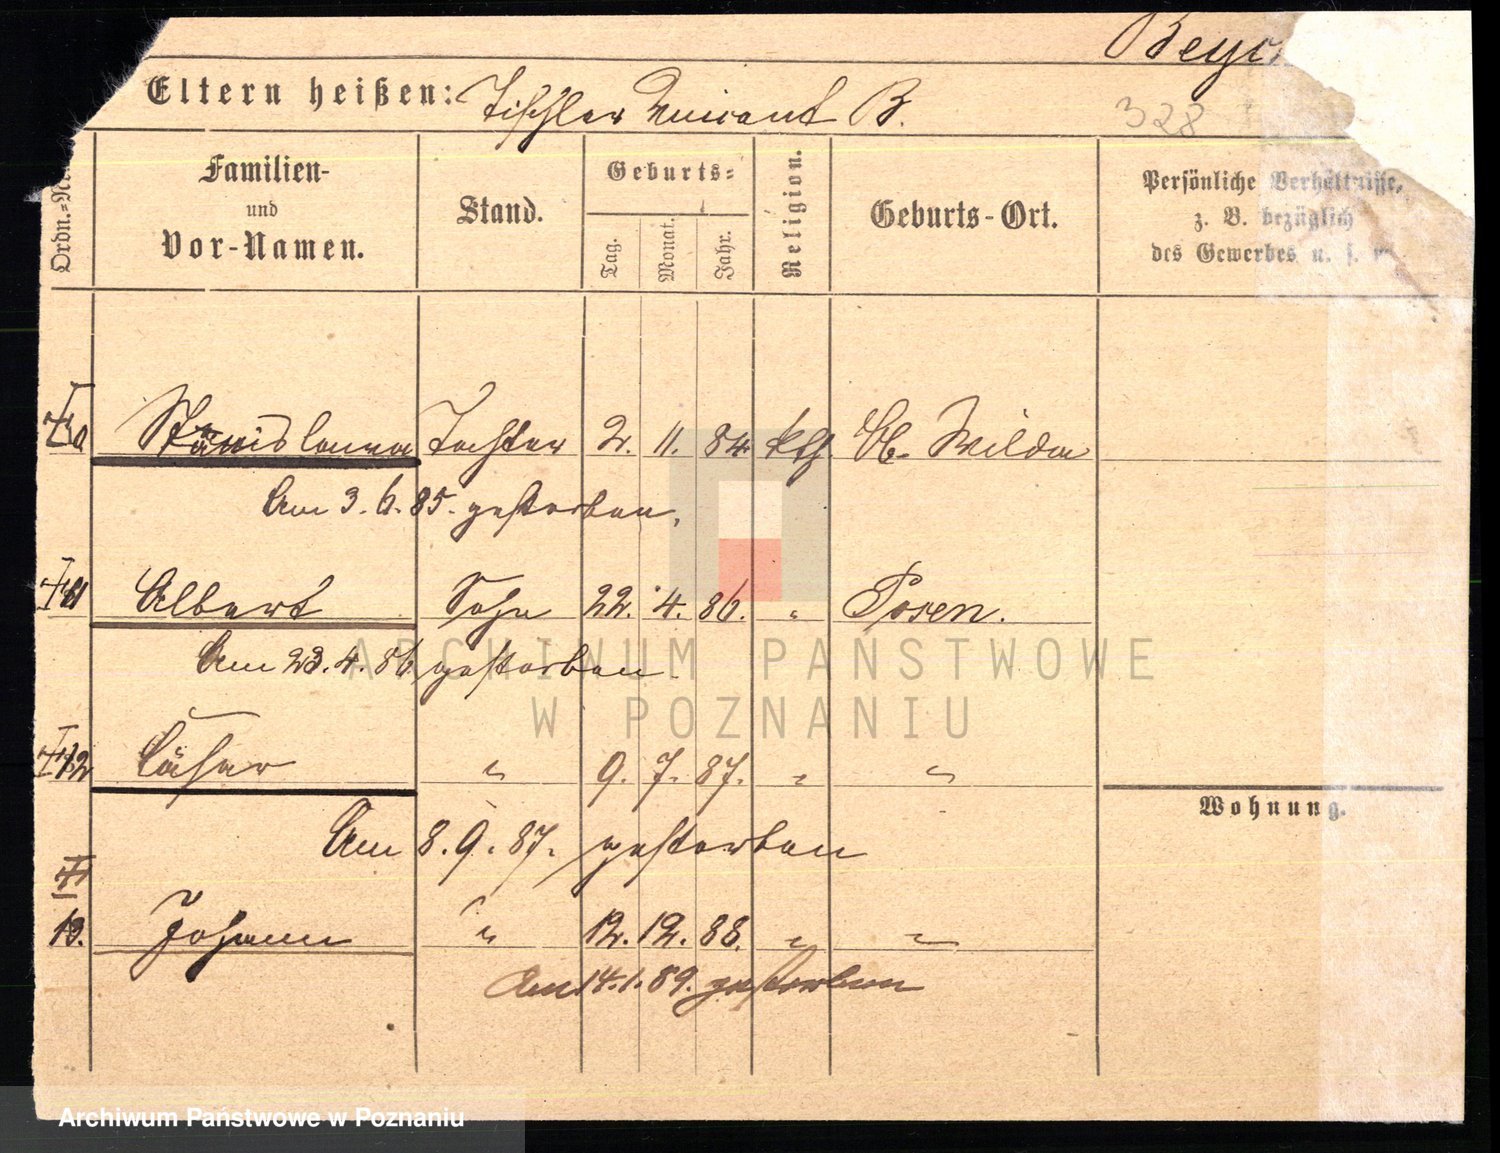 Eltern heißen: Tischler Vincent B.
328
Ordn.-No.
Familien-
und
Vor-Namen.
Stand.
Geburts-
Tag.
Monat.
Jahr.
Religion.
Geburts-Ort.
Persönliche Verhältnisse,
z. B. bezüglich
des Gewerbes u. s. w.
Stanislawa Tochter 2. 11. 84. kth. Ob. Wilda
Am 3.6.85. gestorben.
Albert Sohn 22. 4. 86. " Posen.
Am 23.4.86. gestorben.
12 Cäsar " 9. 7. 87. " "
Wohnung.
Am 8.9.87. gestorben
Johann " 12. 12. 88. " "
Am 14.1.89. gestorben
ARCHIWUM PAŃSTWOWE
W POZNANIU
Archiwum Państwowe w Poznaniu